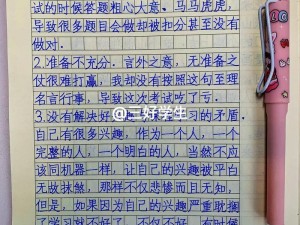 试的时候答题粗心大意、马马虎虎，
导致很多题目会做却被扣分甚至没有
做对.
2.准备不充分.言外之意,无准备之
仗很难打赢,我却没有按照这句至理
名言行事,导致这次考试吃了亏.
@三好学生
3.没有解决好 习的矛盾.
自己有很多兴趣,作为一个人,一个
完整的人,一个明白的人,当然不应
该同机器一样,让自己的兴趣被平白
无故抹煞,那样不仅悲惨而且无知,
但是,如果因为自己的兴趣严重耽搁
了学习就不好了,不仅不好,有时候